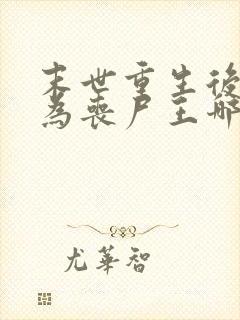 末世重生後
為喪尸王那
尤華智